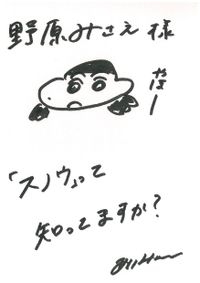 野原みさえ様
やほー
「スノウ」って
知ってますか?